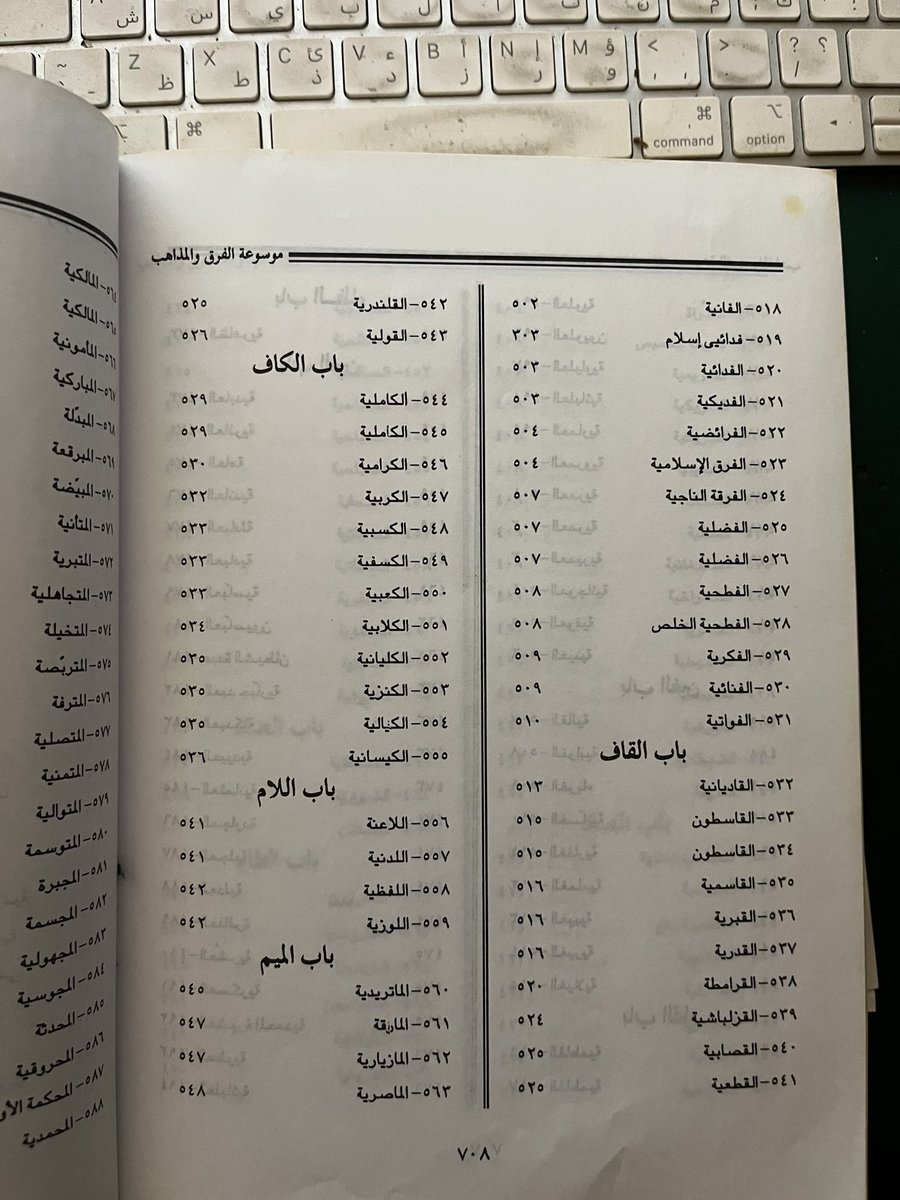 موسوعة الفرق والمذاهب
٥١٨-الفانية ٥٠٢
٥١٩-فدائيي إسلام ٣٠٣
٥٢٠-الفدائية ٥٠٣
٥٢١-الفديكية ٥٠٣
٥٢٢-الفرائضية ٥٠٤
٥٢٣-الفرق الإسلامية ٥٠٤
٥٢٤-الفرقة الناجية ٥٠٧
٥٢٥-الفضلية ٥٠٧
٥٢٦-الفضلية ٥٠٧
٥٢٧-الفطحية ٥٠٨
٥٢٨-الفطحية الخلص ٥٠٨
٥٢٩-الفكرية ٥٠٩
٥٣٠-الفنائية ٥٠٩
٥٣١-الفواتية ٥١٠
باب القاف
٥٣٢-القاديانية ٥١٣
٥٣٣-القاسطون ٥١٥
٥٣٤-القاسطون ٥١٥
٥٣٥-القاسمية ٥١٦
٥٣٦-القبرية ٥١٦
٥٣٧-القدرية ٥١٦
٥٣٨-القرامطة ٥٢٠
٥٣٩-القزلباشية ٥٢٤
٥٤٠-القصابية ٥٢٥
٥٤١-القطعية ٥٢٥
٥٤٢-القلندرية ٥٢٥
٥٤٣-القولية ٥٢٦
باب الكاف
٥٤٤-الكاملية ٥٢٩
٥٤٥-الكاملية ٥٢٩
٥٤٦-الكرامية ٥٣٠
٥٤٧-الكربية ٥٣٢
٥٤٨-الكسبية ٥٣٣
٥٤٩-الكسفية ٥٣٣
٥٥٠-الكعبية ٥٣٣
٥٥١-الكلابية ٥٣٤
٥٥٢-الكليانية ٥٣٥
٥٥٣-الكنزية ٥٣٥
٥٥٤-الكيالية ٥٣٥
٥٥٥-الكيسانية ٥٣٦
باب اللام
٥٥٦-اللاعنة ٥٤١
٥٥٧-اللدنية ٥٤١
٥٥٨-اللفظية ٥٤٢
٥٥٩-اللوزية ٥٤٢
باب الميم
٥٦٠-الماتريدية ٥٤٥
٥٦١-المارقة ٥٤٧
٥٦٢-المازيارية ٥٤٧
٥٦٣-الماصرية ٥٤٨
٧٠٨
المالكية
المالكية
المأمونية
المباركية
٥٦٨-المبدّلة
المبرقعة
٥٧٠-المبيّضة
٥٧١-المتأنية
٥٧٢-المتبرية
٥٧٣-المتجاهلية
٥٧٤-المتخيلة
٥٧٥-المتربّصة
٥٧٦-المترفة
٥٧٧-المتصلية
٥٧٨-المتمنية
٥٧٩-المتوالية
٥٨٠-المتوسمة
٥٨١-المجبرة
٥٨٢-المجسمة
المجهولية
٥٨٤-المجوسية
٥٨٥-المحدثة
٥٨٦-المحروقية
٥٨٧-المحكمة
٥٨٨-المحمدية
Z ظ
X ط
C ئ ذ
V ء د
B أ ز
N إ ر
M ؤ و
< ,
> .
? ؟ /
⌘
⌘ command
⌥ option